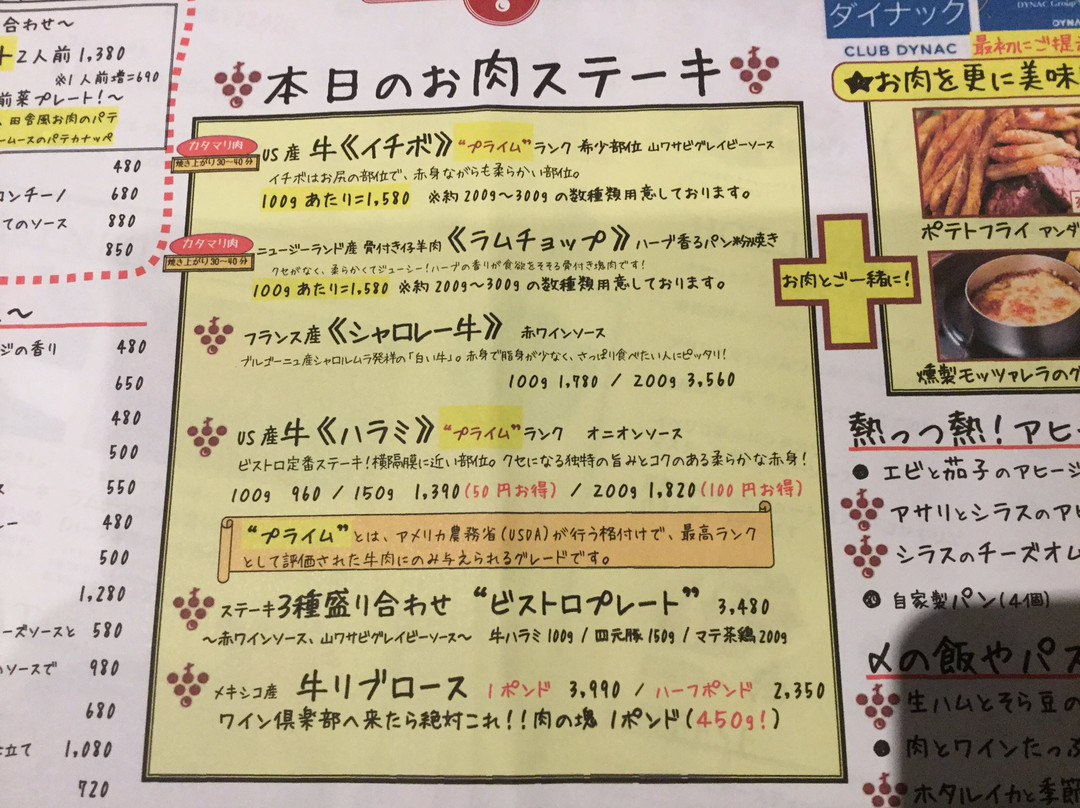 合わせ〜
2人前 1,380
※1人前増=690
前菜プレート!〜
、田舎風お肉のパテ
ームースのパテカナッペ
480
コンチーノ 680
てのソース 880
850
〜
ジの香り 480
650
480
500
ス 550
レー 480
500
1,280
ーズソースと 580
ソースで 980
680
仕立て 1,080
720
本日のお肉ステーキ
カタマリ肉
焼き上がり30〜40分
US産 牛《イチボ》“プライム”ランク 希少部位 山ワサビグレイビーソース
イチボはお尻の部位で、赤身ながらも柔らかい部位。
100gあたり=1,580 ※約200g〜300gの数種類用意しております。
カタマリ肉
焼き上がり30〜40分
ニュージーランド産 骨付き仔羊肉《ラムチョップ》ハーブ香るパン粉焼き
クセがなく、柔らかくてジューシー!ハーブの香りが食欲をそそる骨付き塊肉です!
100gあたり=1,580 ※約200g〜300gの数種類用意しております。
フランス産《シャロレー牛》 赤ワインソース
ブルゴーニュ産シャロルムラ発祥の「白い牛」。赤身で脂身が少なく、さっぱり食べたい人にピッタリ!
100g 1,780 / 200g 3,560
US産牛《ハラミ》“プライム”ランク オニオンソース
ビストロ定番ステーキ!横隔膜に近い部位。クセになる独特の旨みとコクのある柔らかな赤身!
100g 960 / 150g 1,390(50円お得) / 200g 1,820(100円お得)
“プライム”とは、アメリカ農務省(USDA)が行う格付けで、最高ランク
として評価された牛肉にのみ与えられるグレードです。
ステーキ3種盛り合わせ “ビストロプレート” 3,480
〜赤ワインソース、山ワサビグレイビーソース〜 牛ハラミ100g / 四元豚150g / マテ茶鶏200g
メキシコ産 牛リブロース 1ポンド 3,990 / ハーフポンド 2,350
ワイン倶楽部へ来たら絶対これ!!肉の塊 1ポンド(450g!)
ダイナック
DYNAC Group
CLUB DYNAC
最初にご提
★お肉を更に美味
ポテトフライ アンダ
お肉とご一緒に!
燻製モッツァレラのグ
熱っつ熱!アヒー
● エビと茄子のアヒージ
アサリとシラスのアヒ
シラスのチーズオム
自家製パン(4個)
〆の飯やパス
生ハムとそら豆の
● 肉とワインたっぷ
ホタルイカと季節